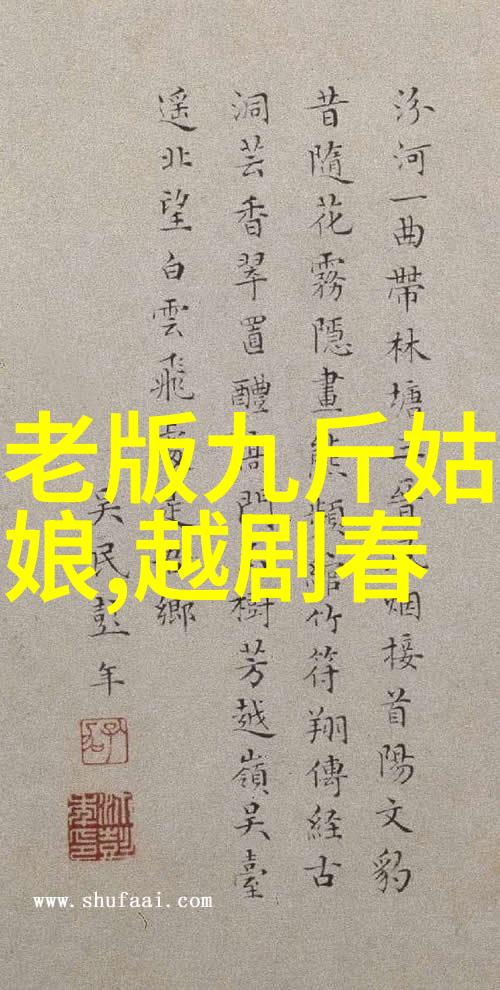 汾河一曲帶林塘烟接首陽文豹
昔隨花霧隱畫熊頻綰竹符翔傳經古
洞芸香翠置醴門樹芳越嶺吳臺
遥北望白雲飛鄉
吳民彭年
老版九斤姑
娘,越剧春
www.shufaai.com